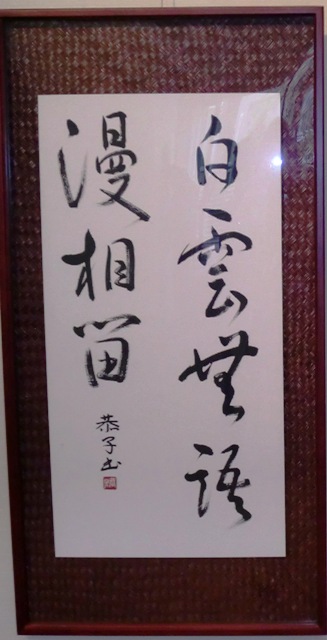 白雲無語
漫相留
恭子書